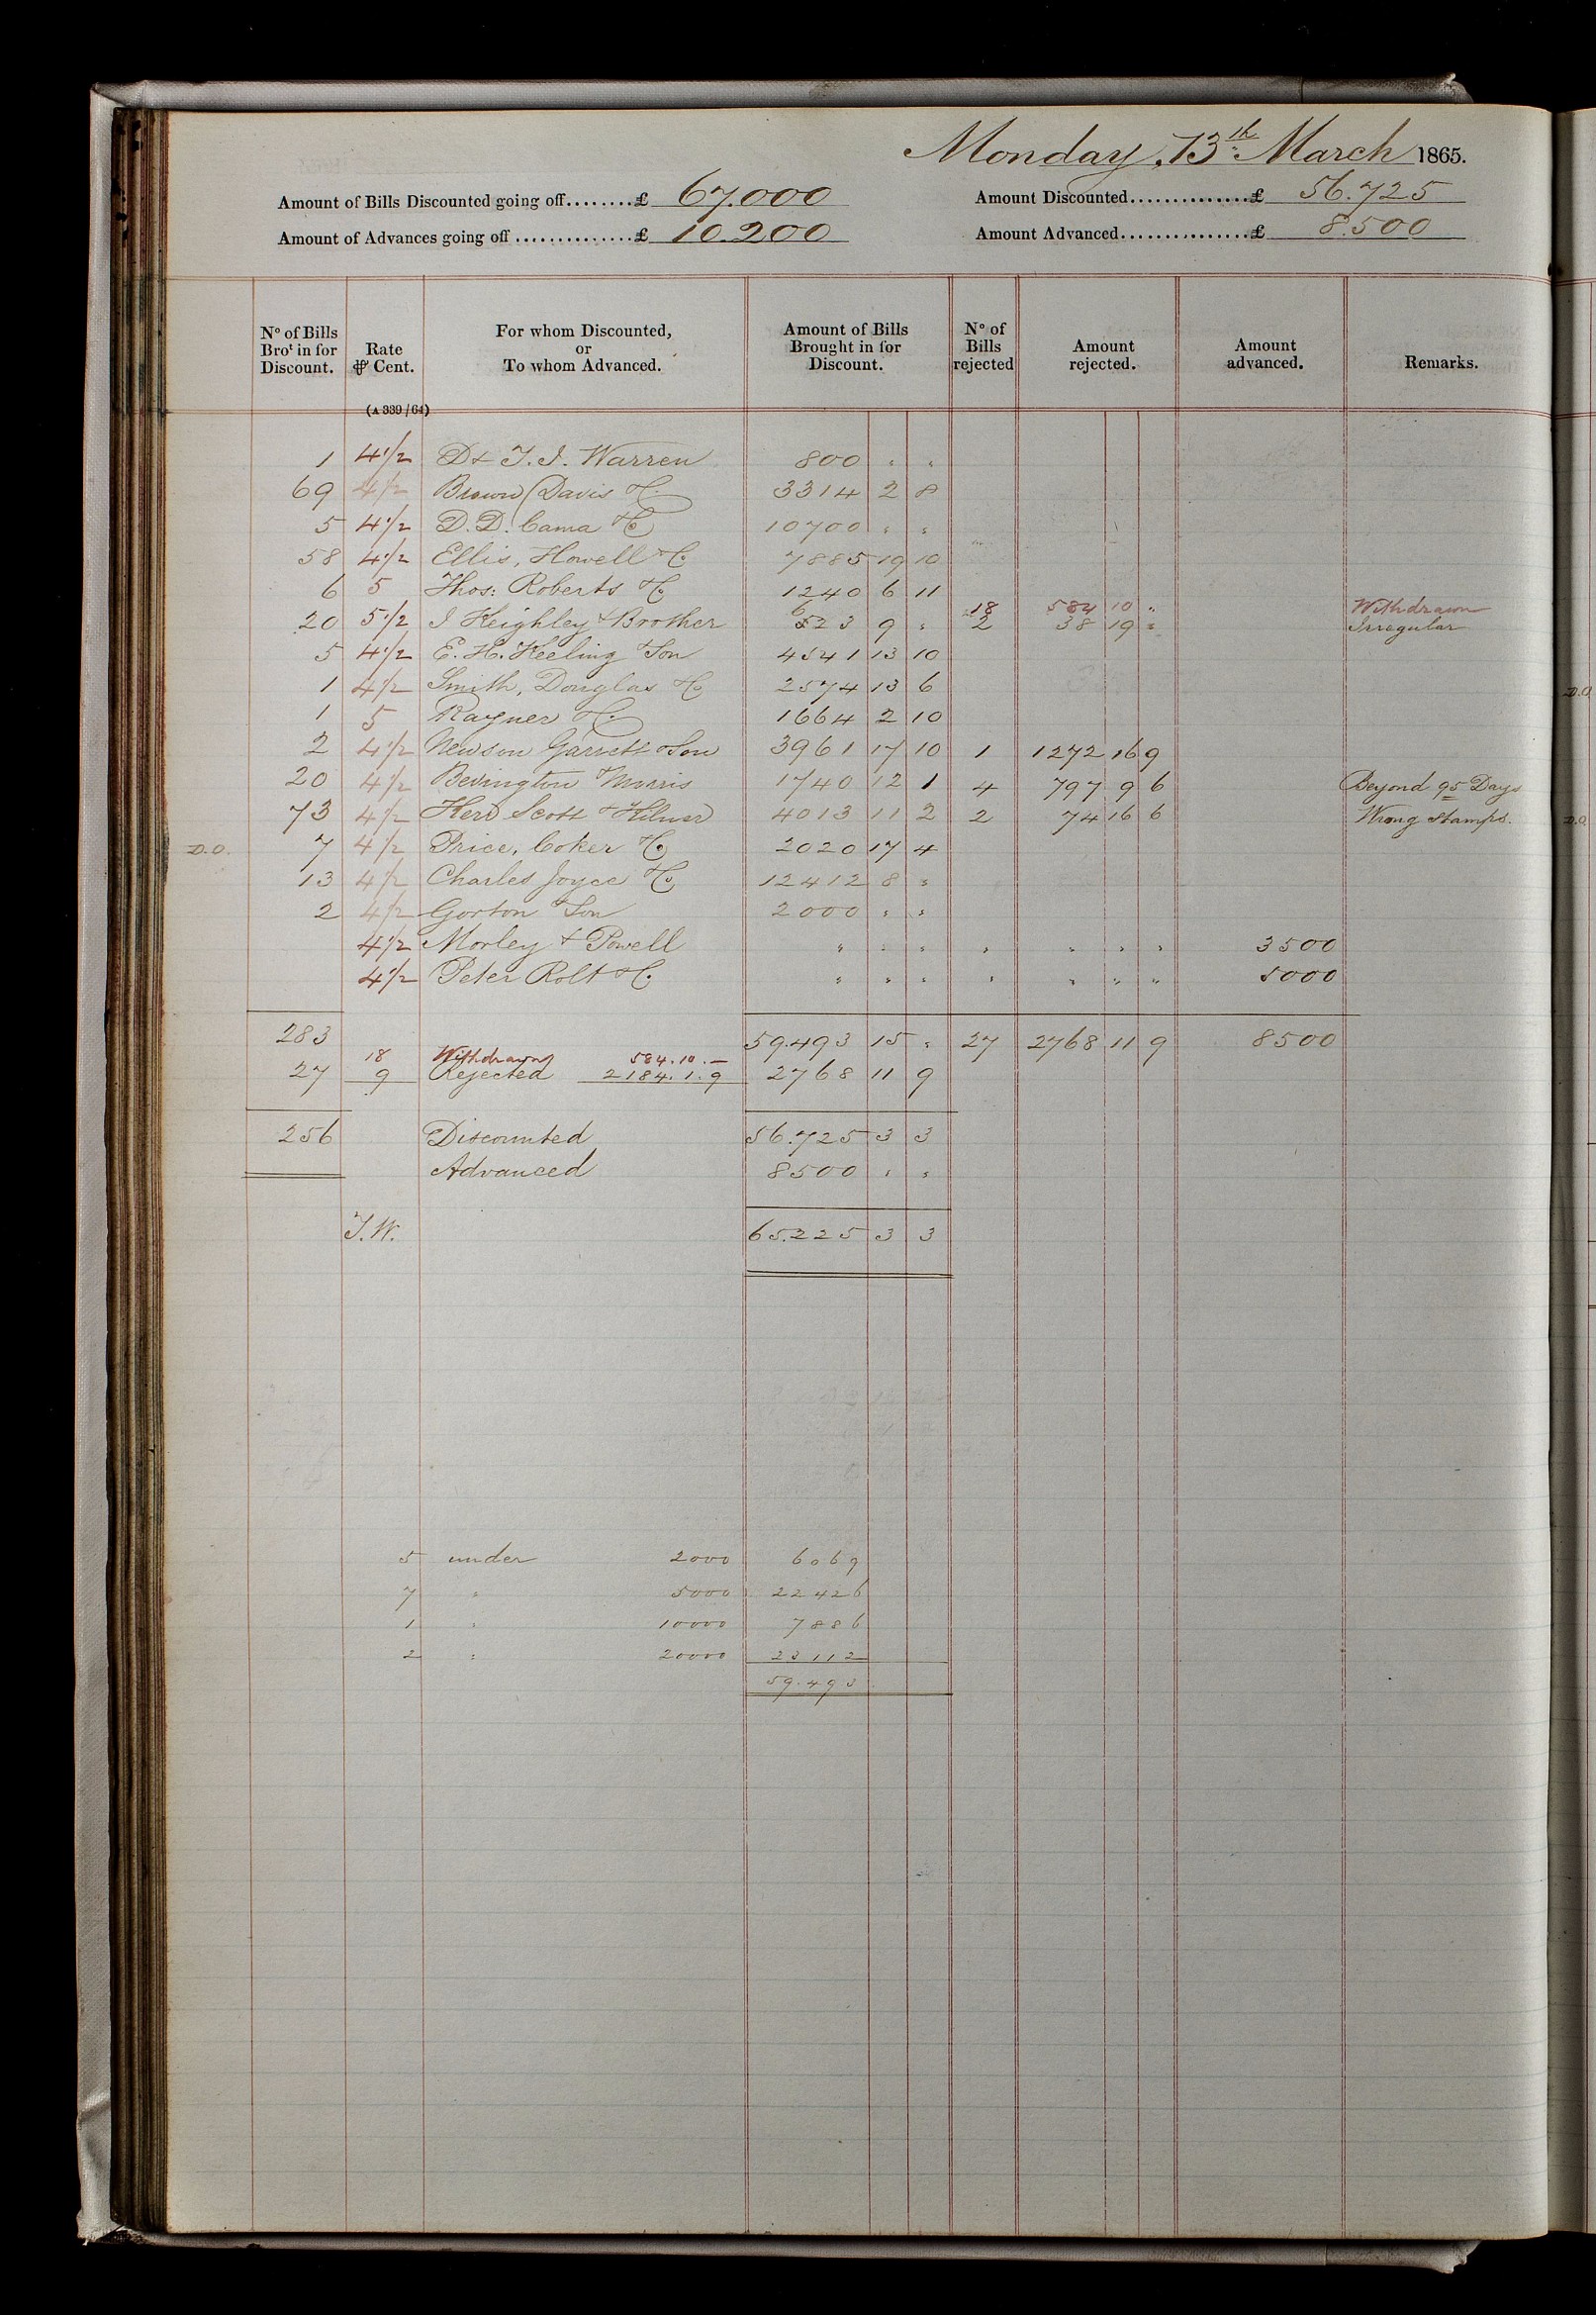 Monday, 13th March 1865.
Amount of Bills Discounted going off........£ 67.000 Amount Discounted...............£ 56.725
Amount of Advances going off ...............£ 10.200 Amount Advanced................£ 8.500
No of Bills Brot in for Discount. Rate ⅌ Cent. For whom Discounted, or To whom Advanced. Amount of Bills Brought in for Discount. No of Bills rejected Amount rejected. Amount advanced. Remarks.
(A 339/64)
1 4 1/2 D & T. J. Warren 800 " "
69 4 1/2 Brown Davis & Co 3314 2 8
5 4 1/2 D. D. Cama & Co 10700 " "
58 4 1/2 Ellis, Howell & Co 7885 19 10
6 5 Thos: Roberts & Co 1240 6 11
18 584 10 " Withdrawn
20 5 1/2 J Keighley & Brother 623 9 " 2 38 19 " Irregular
5 4 1/2 E. H. Keeling & Son 4541 13 10
1 4 1/2 Smith, Douglas & Co 2574 13 6
1 5 Rayner & Co 1664 2 10
2 4 1/2 Newson Garrett & Son 3961 17 10 1 1272 16 9
20 4 1/2 Bevington & Morris 1740 12 1 4 797 9 6 Beyond 95 Days
73 4 1/2 Herd Scott & Hilner 4013 11 2 2 74 16 6 Wrong Stamps.
D.O. 7 4 1/2 Price, Coker & Co 2020 17 4
13 4 1/2 Charles Joyce & Co 12412 8 "
2 4 1/2 Gorton & Son 2000 " "
4 1/2 Morley & Powell " " " " " " " 3500
4 1/2 Peter Rolt & Co " " " " " " " 5000
283 59.493 15 " 27 2768 11 9 8500
18 Withdrawn 584.10.—
27 9 Rejected 2184.1.9 2768 11 9
256 Discounted 56.725 3 3
Advanced 8500 " "
T.W. 65.225 3 3
5 under 2000 6069
7 " 5000 22426
1 " 10000 7886
2 " 20000 23112
59.493
D.O.
D.O.